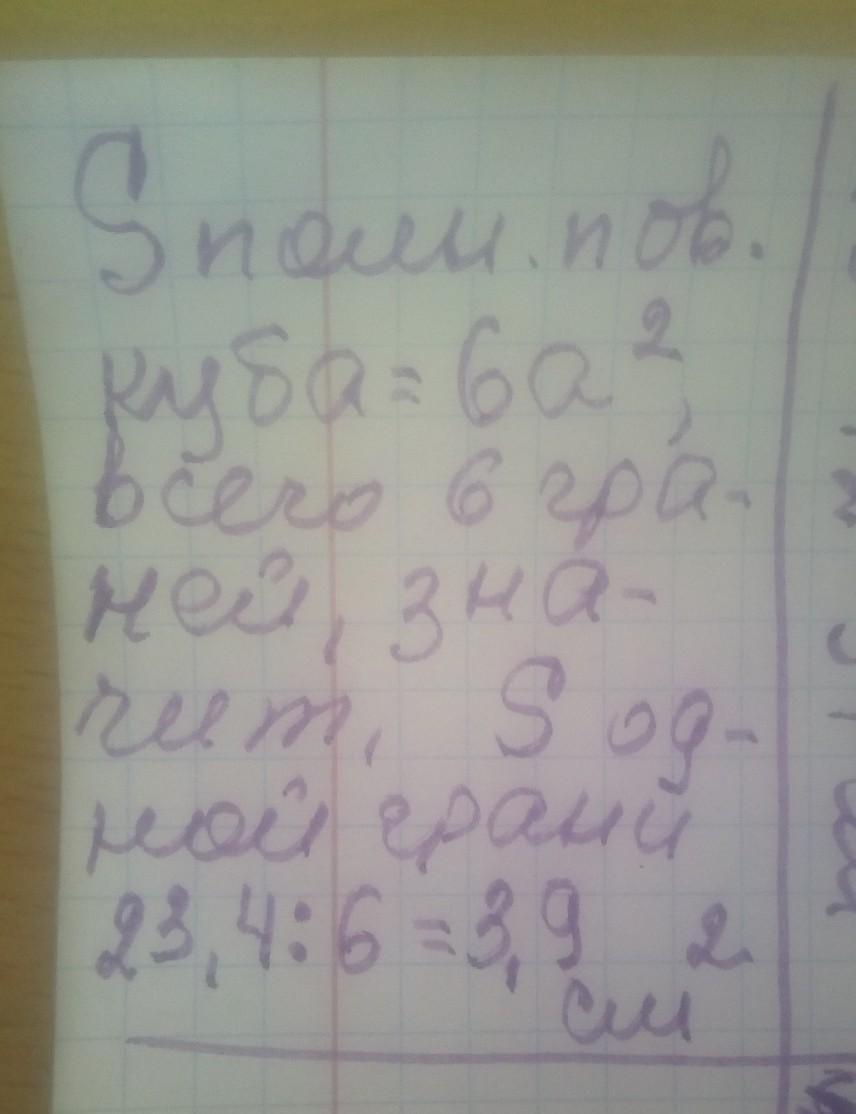 Sполн. пов.
куба = 6a²,
всего 6 гра-
ней, зна-
чит, S од-
ной грани
23,4:6=3,9 см²